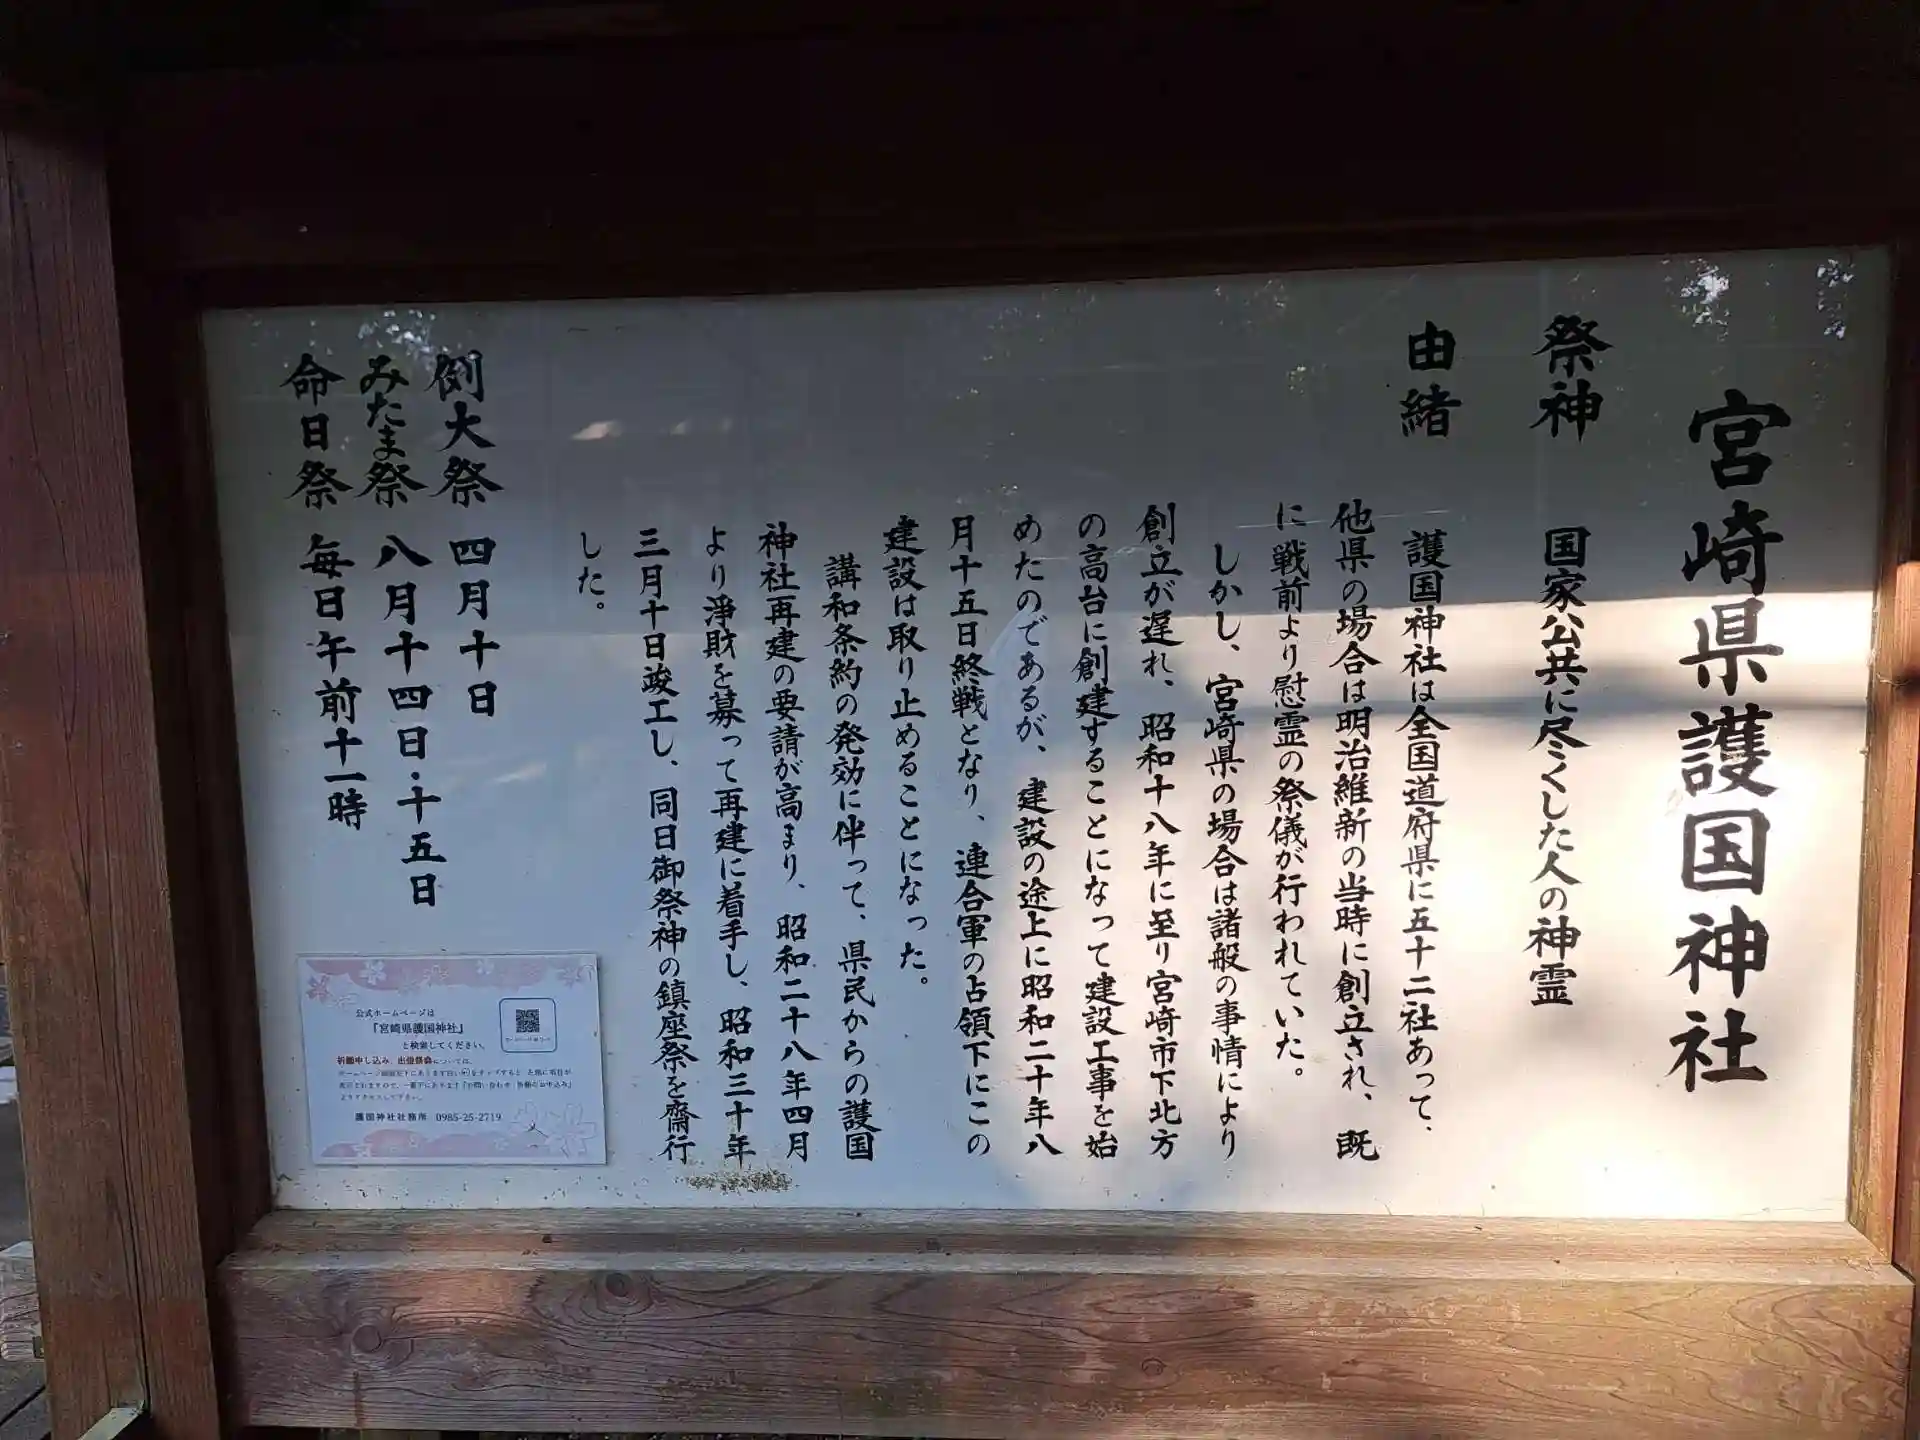 宮崎県護国神社
祭神　国家公共に尽くした人の神霊
由緒
護国神社は全国道府県に五十二社あって、
他県の場合は明治維新の当時に創立され、既
に戦前より慰霊の祭儀が行われていた。
しかし、宮崎県の場合は諸般の事情により
創立が遅れ、昭和十八年に至り宮崎市下北方
の高台に創建することになって建設工事を始
めたのであるが、建設の途上に昭和二十年八
月十五日終戦となり、連合軍の占領下にこの
建設は取り止めることになった。
講和条約の発効に伴って、県民からの護国
神社再建の要請が高まり、昭和二十八年四月
より浄財を募って再建に着手し、昭和三十年
三月十日竣工し、同日御祭神の鎮座祭を齋行
した。
例大祭　四月十日
みたま祭　八月十四日・十五日
命日祭　毎日午前十一時
公式ホームページは
『宮崎県護国神社』
と検索してください。
祈願申し込み、出張祭典については、
護国神社社務所　0985-25-2719